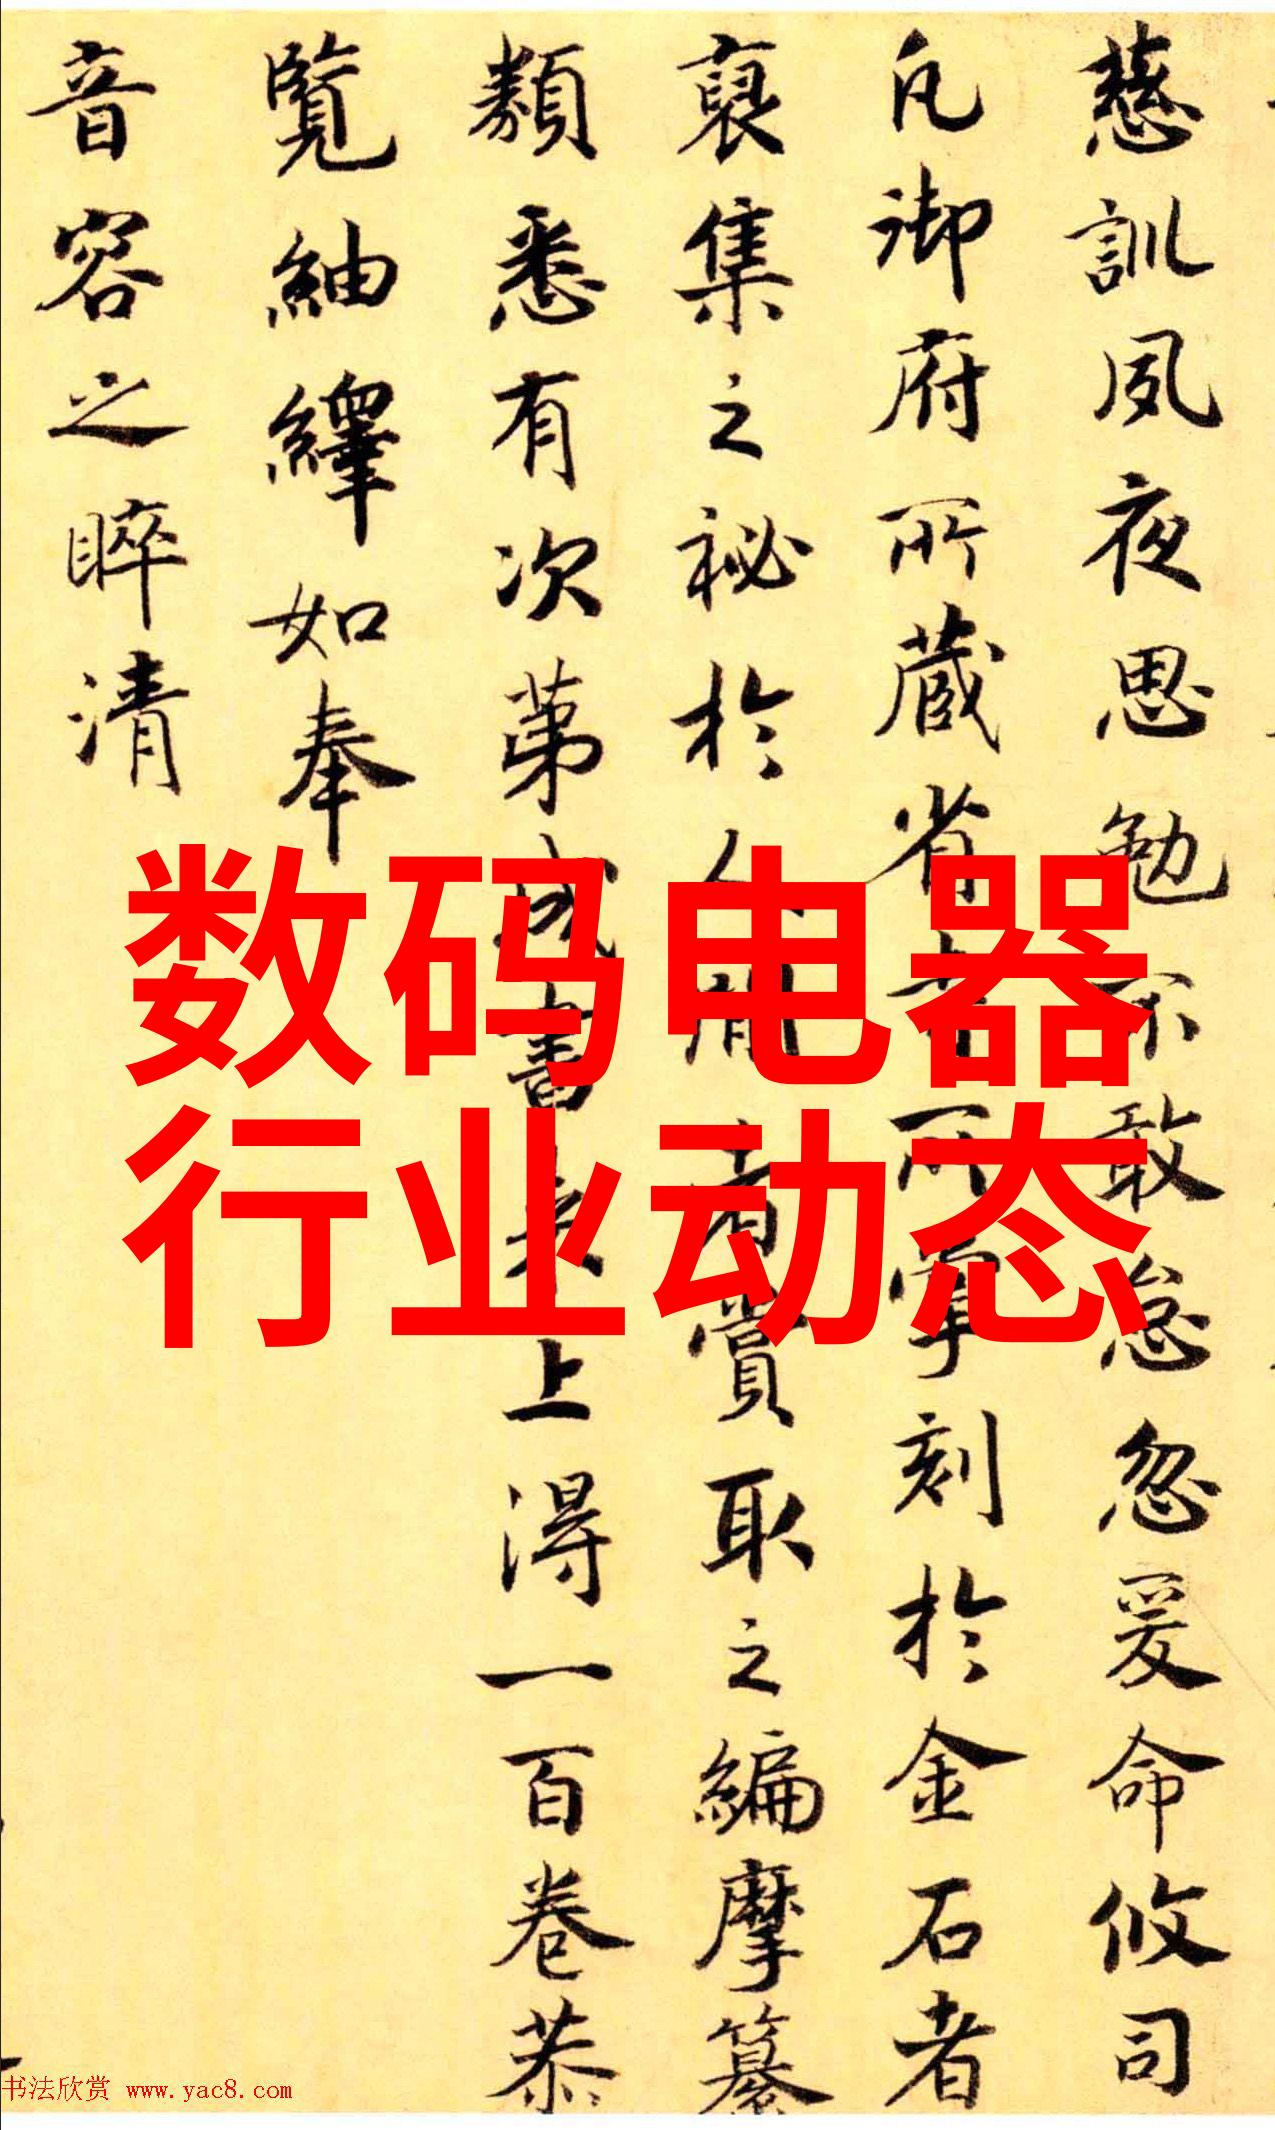 慈訓夙夜思勉不敢怠忽爰命攸司
凡御府所藏省所掌刻於金石者
裒集之祕於人間者賞取之編摩纂
類悉有次第成書來上得一百卷恭
覽紬繹如奉
音容之睟清
数码电器
行业动态
书法欣赏 www.yac8.com